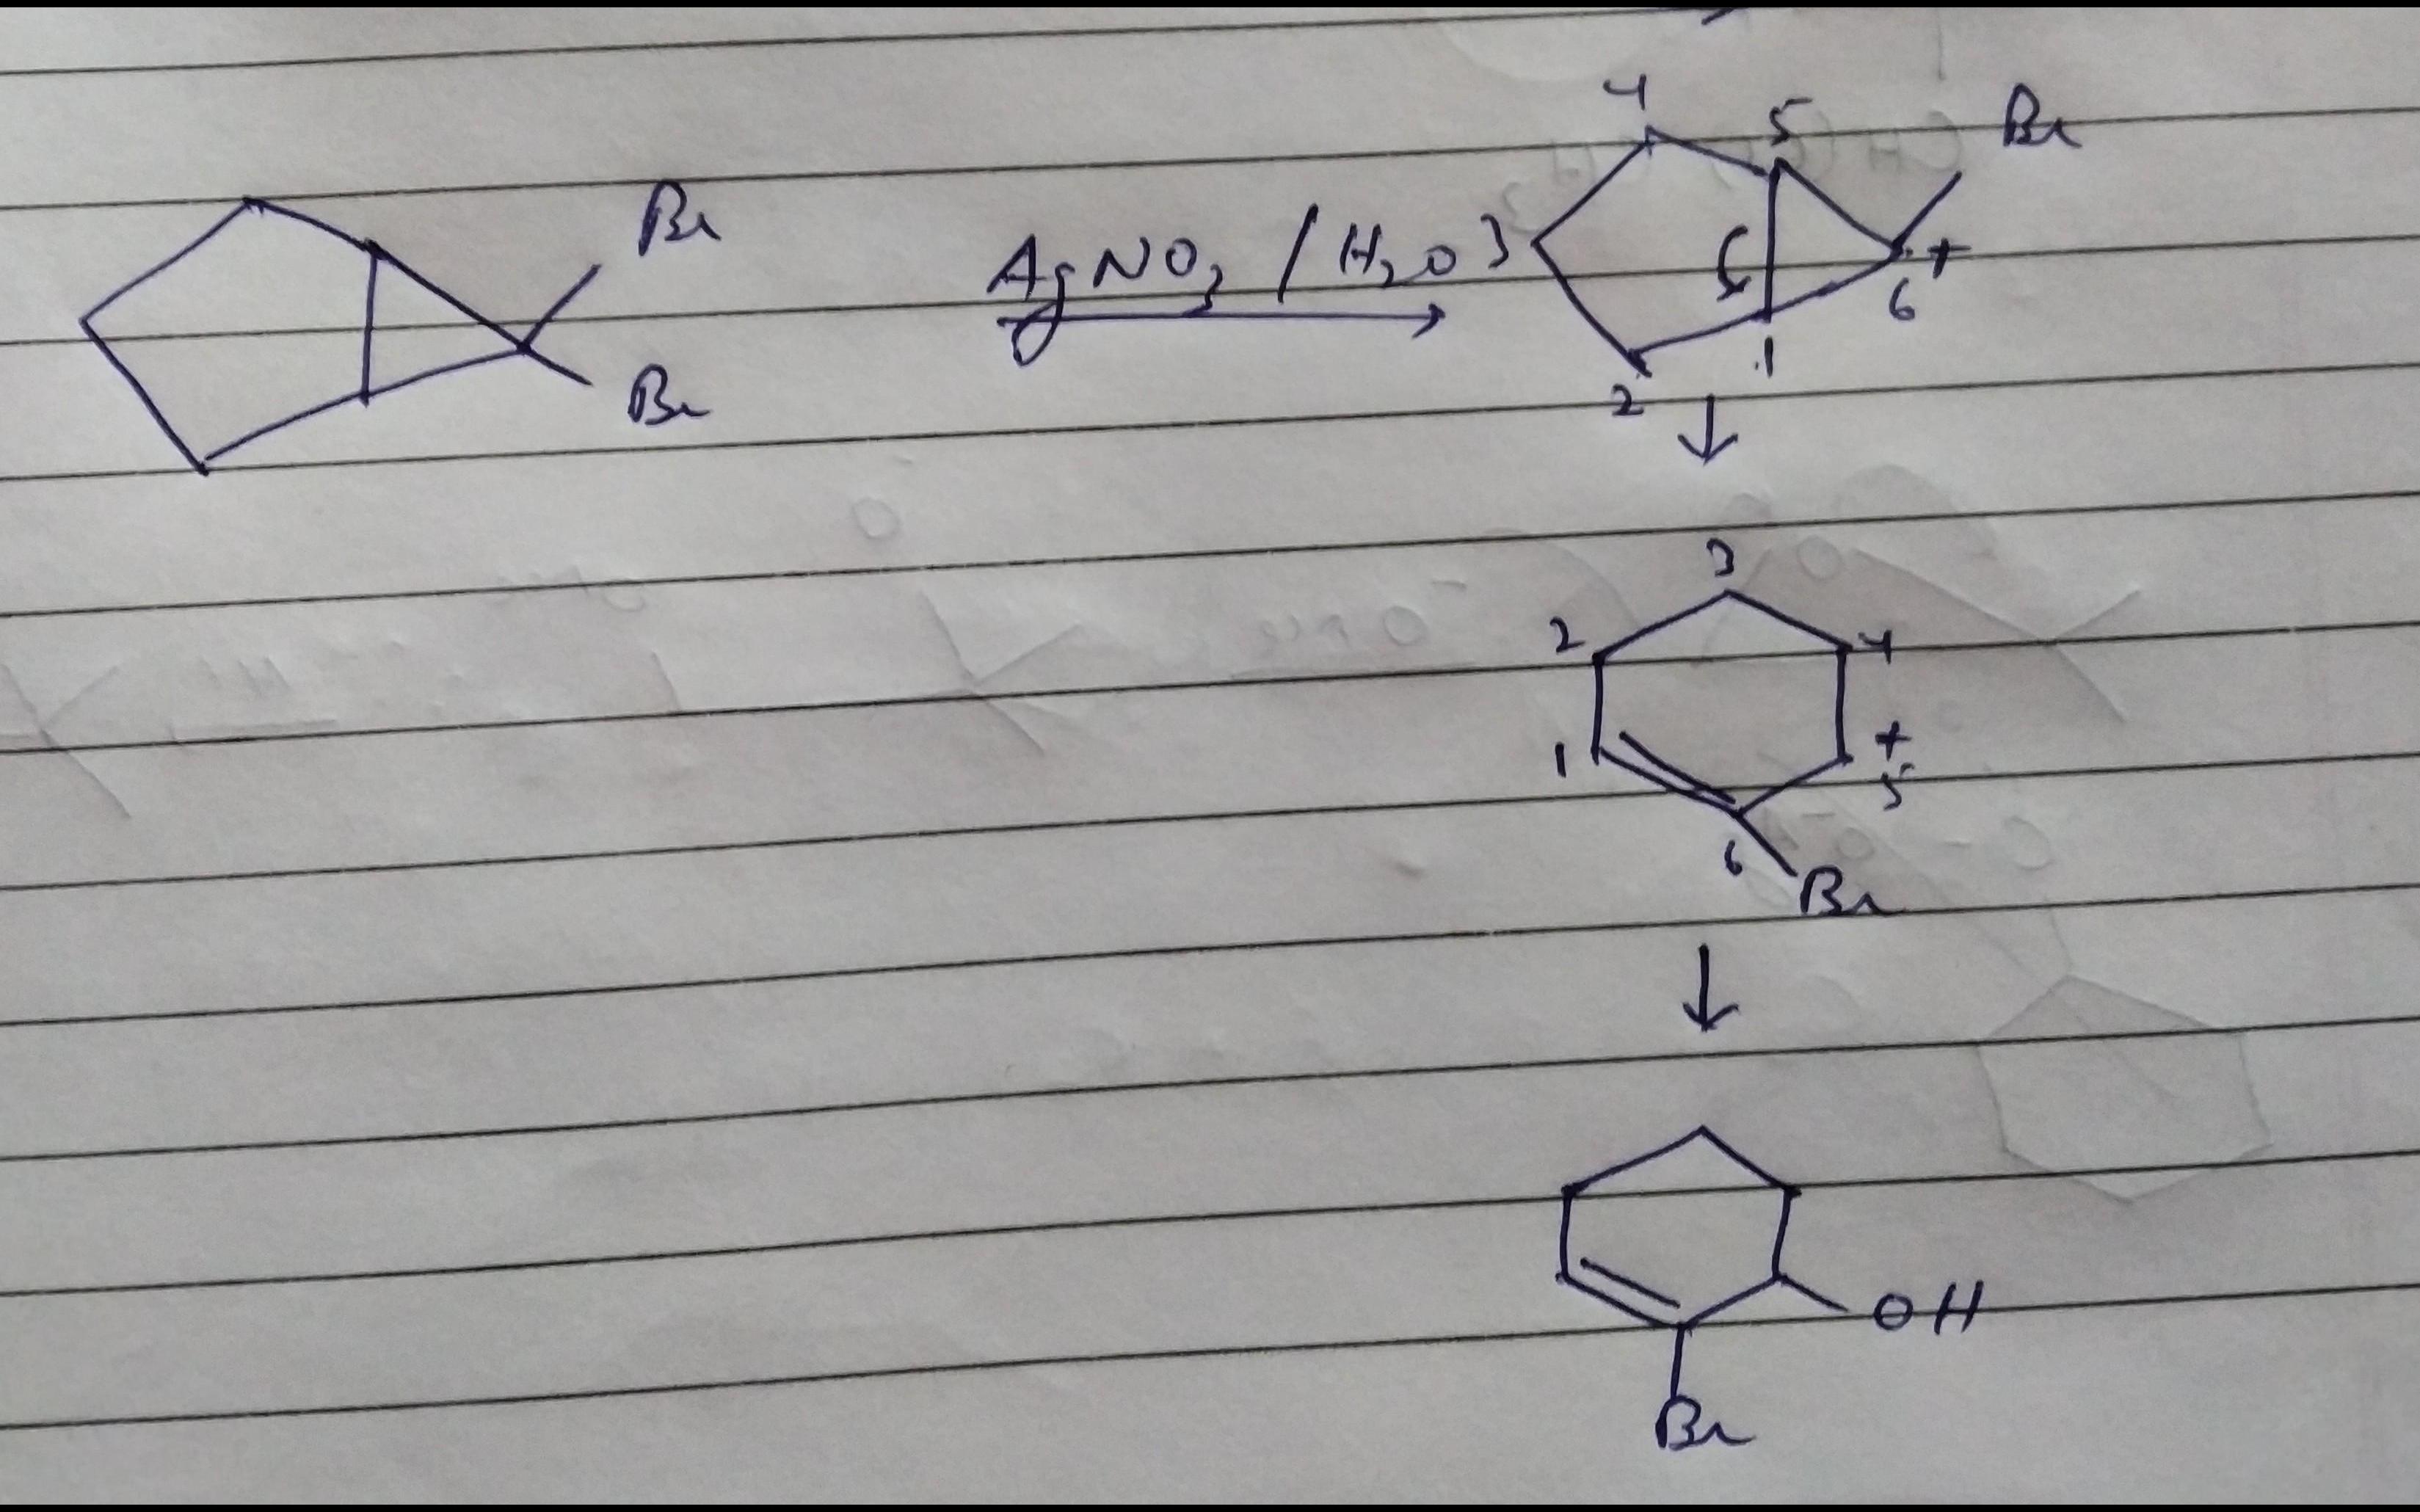 Br
Br
AgNO3 / H2O
4 5 Br
3
6 +
2 1
3
2 4
1 + 5
6
Br
OH
Br